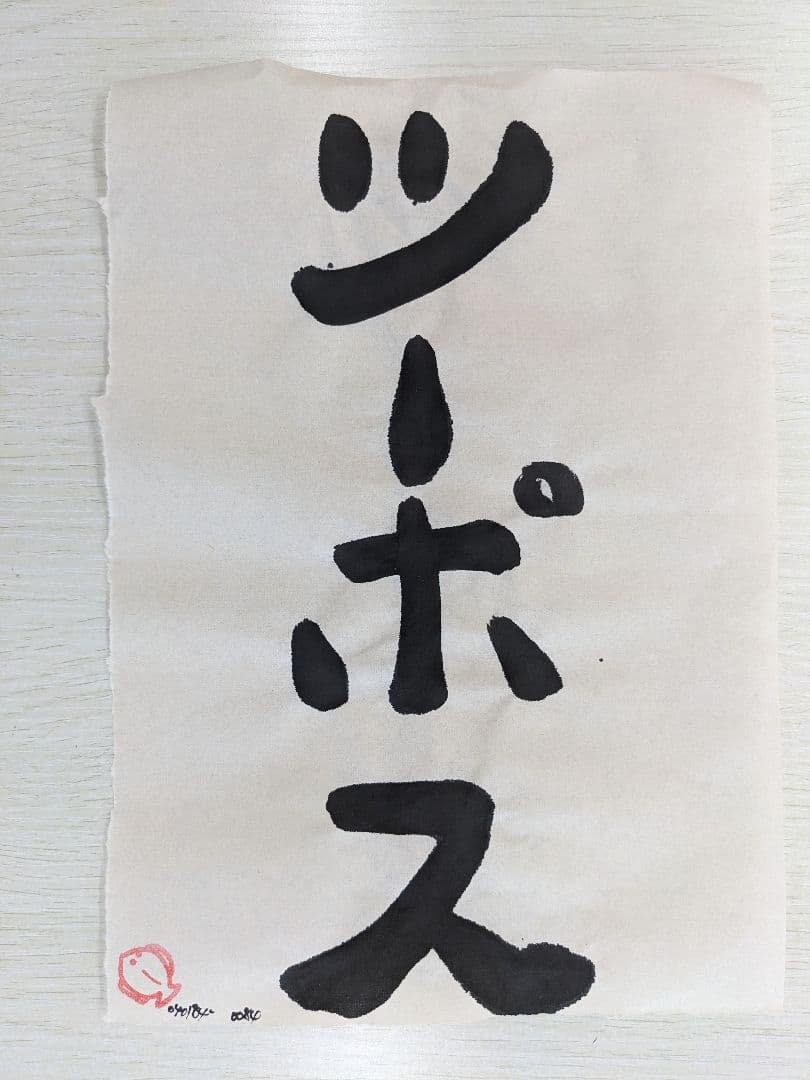 ツーポス